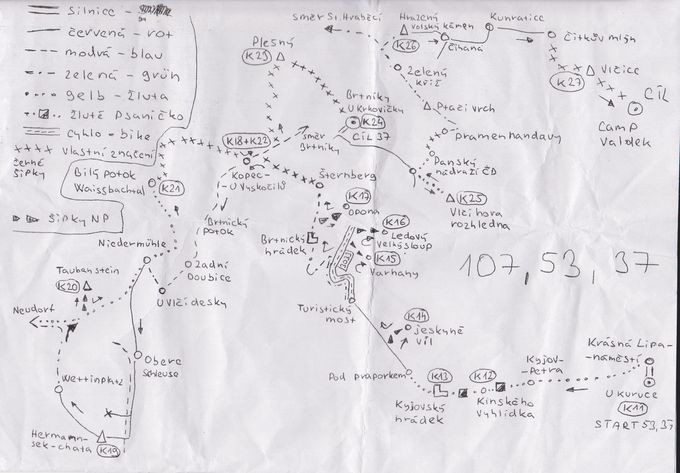 silnice -
červená - rot
modrá - blau
zelená - grün
gelb - žlutá
žlutě Psaníčko
cyklo - bike
vlastní značení
černé
šipky
šipky NP
směr St. Hraběcí
Plešný
K23
Brtníky
U Krkovičky
K24
CÍL 37
K18+K22
směr
Brtníky
Kopec-
U Vyskočilů
Hrazený
volský kámen
K26
Čihaná
Kunratice
Čitkův mlýn
Vlčice
K27
CÍL
CAMP
Valdek
Zelený
kříž
Ptačí vrch
pramen mandavy
Panský
nádraží ČD
K25
Vlčí hora
rozhledna
Bílý potok
Waissbachtal
K21
Šternberg
K17
opona
K16
Ledový
velký sloup
K15
Varhany
Brtnický
hrádek
Brtnický
potok
Niedermühle
Zadní
Doubice
U Vlčí desky
Taubenstein
K20
Neudorf
Obere
schleuse
Wettinplatz
Hermann-
sek-chata
K19
Turistický
most
K14
jeskyně
víl
Pod praporkem
K13
Kyjovský
hrádek
K12
Kinského
Vyhlídka
Kyjov-
Petra
Krásná Lípa-
náměstí
U Kuruce
K11
START 53,37
107, 53, 37